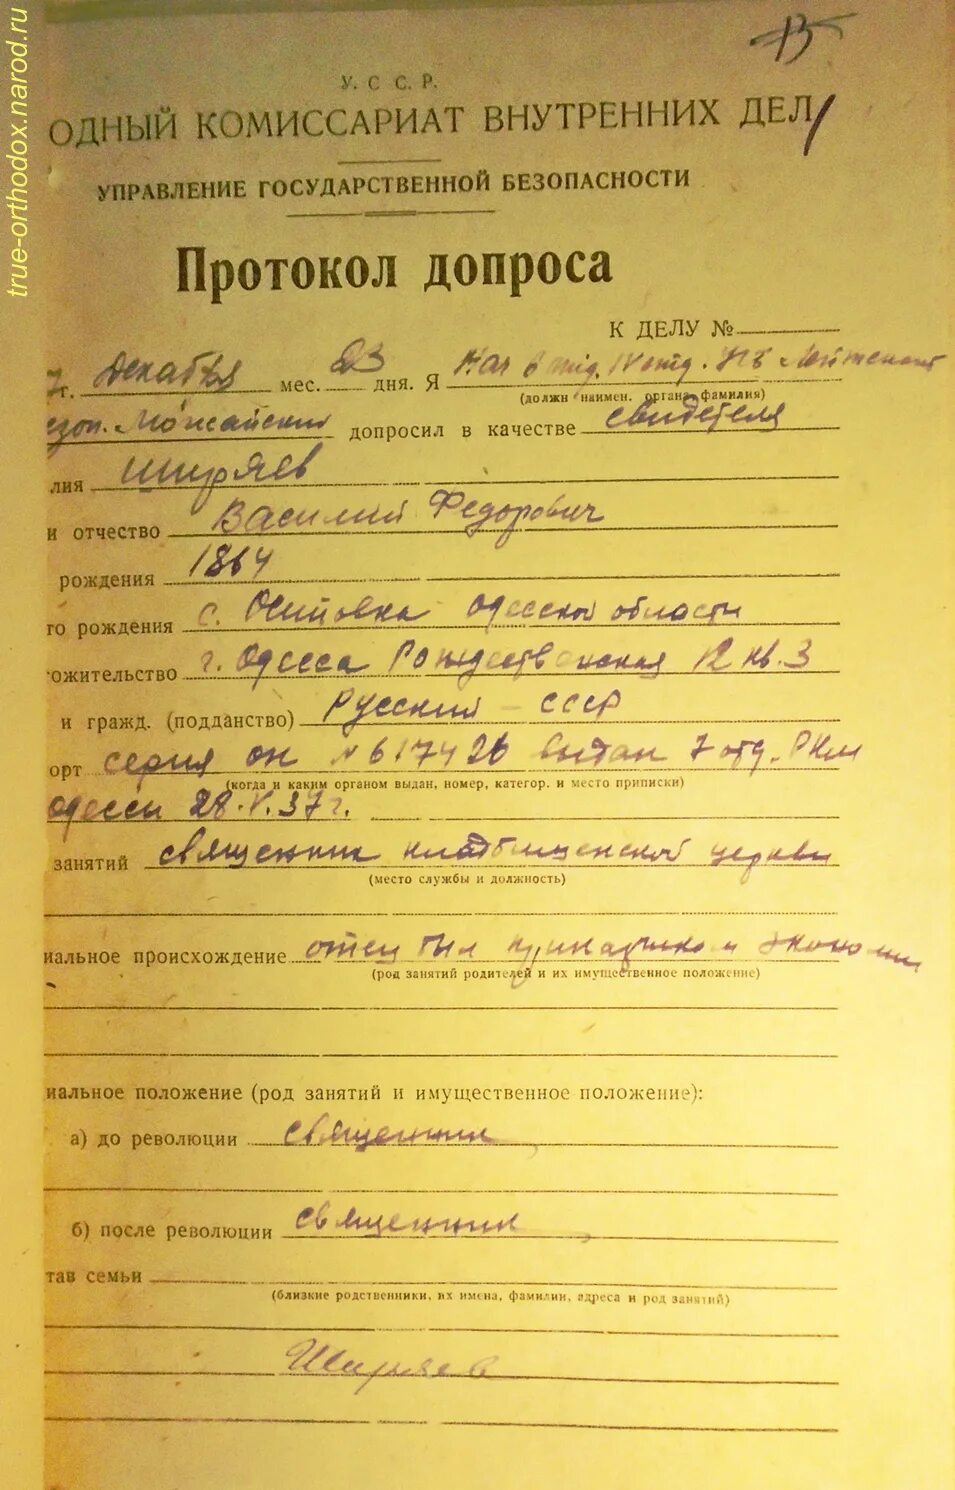 true-orthodox.narod.ru
У. С С. Р.
ОДНЫЙ КОМИССАРИАТ ВНУТРЕННИХ ДЕЛ
УПРАВЛЕНИЕ ГОСУДАРСТВЕННОЙ БЕЗОПАСНОСТИ
Протокол допроса
К ДЕЛУ №
7 г. Декабря мес. 23 дня. Я Нач 6 отд. IV отд. УГБ Лейтенант
(должн наимен. органа фамилия)
езоп. Можайский допросил в качестве свидетеля
лия Ширяев
и отчество Василий Федорович
рождения 1864
го рождения с. Осиповка одесской области
ожительство г. Одесса Рождественская 12 кв. 3
и гражд. (подданство) Русский - СССР
орт серия он № 617426 выдан 7 отд. РКМ
(когда и каким органом выдан, номер, категор. и место приписки)
Одессы 28.V.37 г.
занятий священник кладбищенской церкви
(место службы и должность)
иальное происхождение отец был приказчиком экономии
(род занятий родителей и их имущественное положение)
иальное положение (род занятий и имущественное положение):
а) до революции священник
б) после революции священник
тав семьи
(близкие родственники, их имена, фамилии, адреса и род занятий)
Ширяев